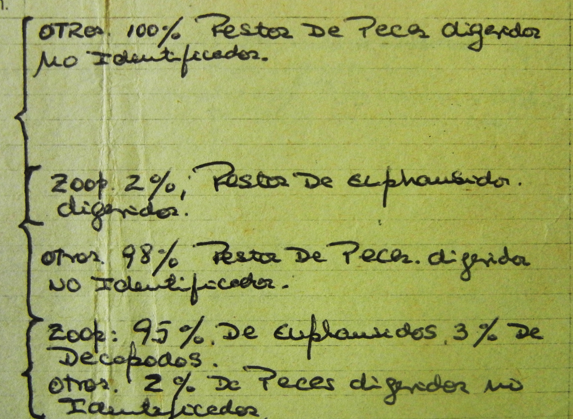 Otros. 100% Restos De Peces digeridos
No Identificados.
Zoop. 2%, Restos De euphausidos.
digeridos.
otros. 98% Restos De Peces. digeridos
NO Identificados.
Zoop: 95% De euphausidos, 3% De
Decapodos.
otros. 2% De Peces digeridos no
Identificados